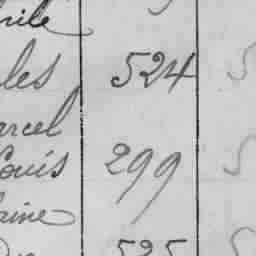 rile
les 524
arcel
Louis 299
aine
525